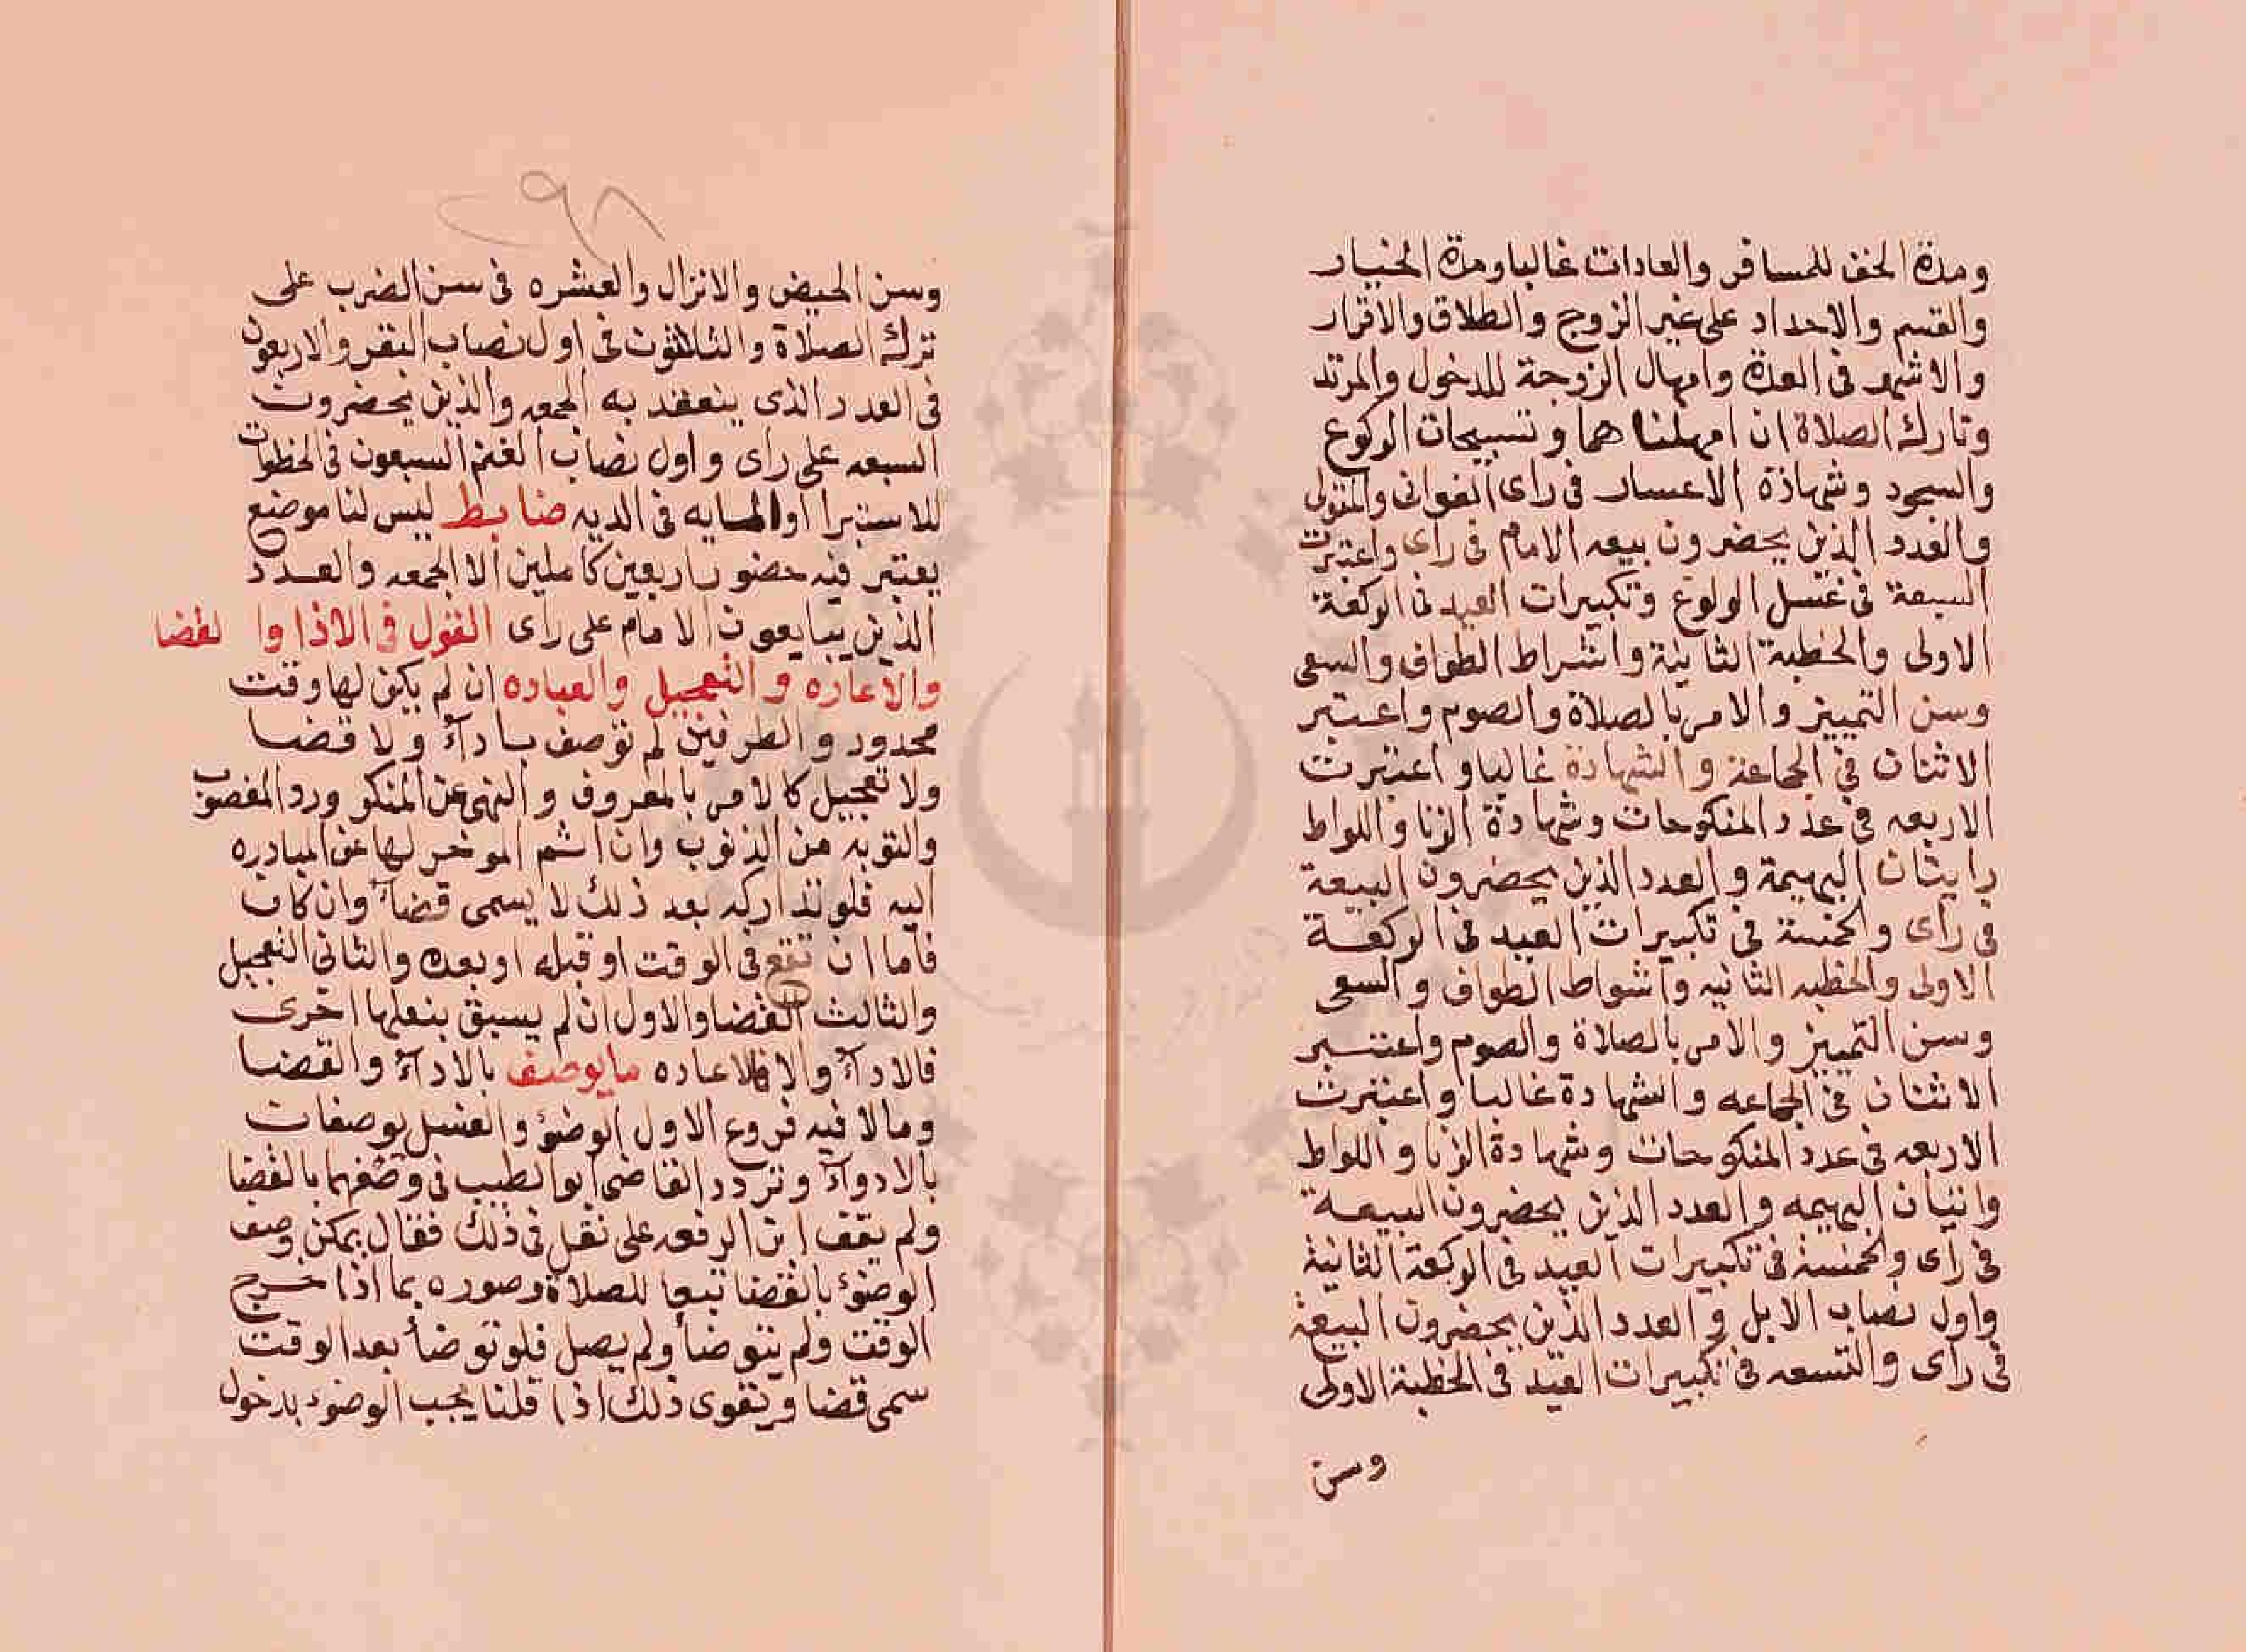 ومدة الخف للمسافر والعادات غالبا ومدة الخيار
والقسم والاحداد على غير الزوج والطلاق والاقرار
والاشهر في العدة وامهال الزوجة للدخول والمرتد
وتارك الصلاة ان امهلناهما وتسبيحات الركوع
والسجود وشهادة الاعسار في راى
والعدد الذين يحضرون بيعه الامام في راى واعتبرت
السبعة في غسل الولوغ وتكبيرات العيد في الركعة
الاولى والخطبة الثانية واشراط الطواف والسعى
وسن التمييز والامر بالصلاة والصوم واعتبر
الاثنان في الجماعة والشهادة غالبا واعتبرت
الاربعه في عدد المنكوحات وشهادة الزنا واللواط
باتيان البهيمة والعدد الذين يحضرون البيعة
في راى والخمسة في تكبيرات العيد في الركعة
الاولى والخطبه الثانيه واشواط الطواف والسعى
وسن التمييز والامر بالصلاة والصوم واعتبر
الاثنان في الجماعه والشهادة غالبا واعتبرت
الاربعه في عدد المنكوحات وشهادة الزنا واللواط
واتيان البهيمه والعدد الذين يحضرون البيعة
في راى والخمسة في تكبيرات العيد في الركعة الثانية
واول نصاب الابل والعدد الذين يحضرون البيعة
في راى والتسعه في تكبيرات العيد في الخطبة الاولى
وسن
٩٨
وسن الحيض والانزال والعشره في سن الضرب على
ترك الصلاة والثلاثون في اول نصاب البقر والاربعون
في العدد الذى ينعقد به الجمعه والذين يحضرون
السبعه على راى واول نصاب الغنم السبعون في الخطوات
للاستبرا والمايه في الديه ضابط ليس لنا موضع
يعتبر فيه حضور اربعين كاملين الا الجمعه والعدد
الذين يبايعون الامام على راى القول في الاذا والقضا
والاعاره والتعجيل والعباده ان لم يكن لها وقت
محدود والطرفين لم توصف باداء ولا قضا
ولا تعجيل كالامر بالمعروف والنهى عن المنكر ورد المغصوب
والتوبه من الذنوب وان اثم الموخر لها عن المبادره
اليه فلو تداركه بعد ذلك لا يسمى قضاء وان كان
فاما ان تقع في الوقت او قبله او بعده والثانى التعجيل
والثالث القضا والاول ان لم يسبق بفعلها اخرى
فالاداء والا فالاعاده ما يوصف بالاداء والقضا
وما لا فيه فروع الاول الوضؤ والغسل يوصفان
بالادواء وتردد القاضى ابو الطيب في وصفهما بالقضا
ولم يقف ابن الرفعه على نقل في ذلك فقال يمكن وصف
الوضؤ بالقضا تبعا للصلاة وصوره بما اذا خرج
الوقت ولم يتوضأ ولم يصل فلو توضأ بعد الوقت
سمى قضا ويقوى ذلك اذا قلنا يجب الوضوء بدخول